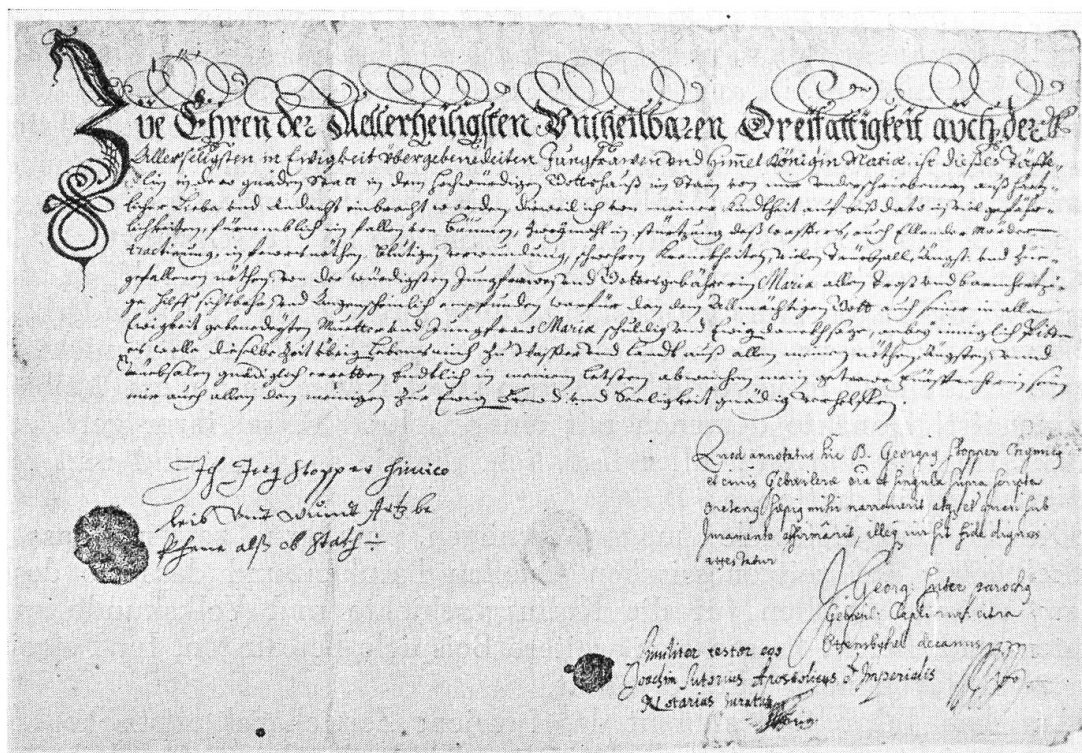 Zue Ehren der Allerheiligsten Vntheilbaren Dreifaltigkeit auch der
Allerseligsten in Ewigkeit vbergebenedeiten Jungfrawen vnd Himmel Königin Mariæ, ist dießes Täffe
lin in der gnaden Statt in dem hochwürdigen Gottshauß im Stain von mir vnderschriebenem auß hertz-
licher Liebe vnd Andacht worden, dieweil ich von meiner Kindtheit auf biß dato in viel gefähr-
lichkeiten, fürnemblich in fallen von Bäumen, Zweymahl in stürtzung deß wassers, auch Ellender Mörder
tractierung, in fewersnöthen, blutigen verwundung, schwehren Kranckheiten, vilen Angst vnd
gefallenen nöthen, von der würdigsten Jungfrawen vnd Gottesgebährerin Maria allen Trost vnd barmhertzi-
ge hilff sichtbahr vnd Augenscheinlich empfunden, warfür dan dem Allmächtigen Gott auch seiner in aller
Ewigkeit gebenedeyten Muetter vnd Jungfraw Mariæ schuldig vnd Ewig danckhsage, Bitten
es wolle dieselbe Zeit Lebens mich zu Wasser vnd Landt auß allen meinen nöthen, Ängsten, vnnd
trüebsalen gnädiglich erretten Endtlich in meinem letsten abweichen mein getrewe Fürsprecherin sein
mir auch allen den meinigen zur Ewig Frewd vnd Seeligkeit gnädig verhelffen
Ich Jerg Stopper
leib vnd wund Artz be
khene alß ob stath
Quod annotatus hic D. Georgius Stopper
et civis Gebwileræ oia et singula supra scripta
mihi narraverit atq et quan sub
Juramento affirmarit, mihi sit fide dignus
attestatur
Georg: Suter parochus
Gebwil:
decanus
Similiter testor ego
Joachim Sutorius Apostolicus & Imperialis
Notarius Juratus